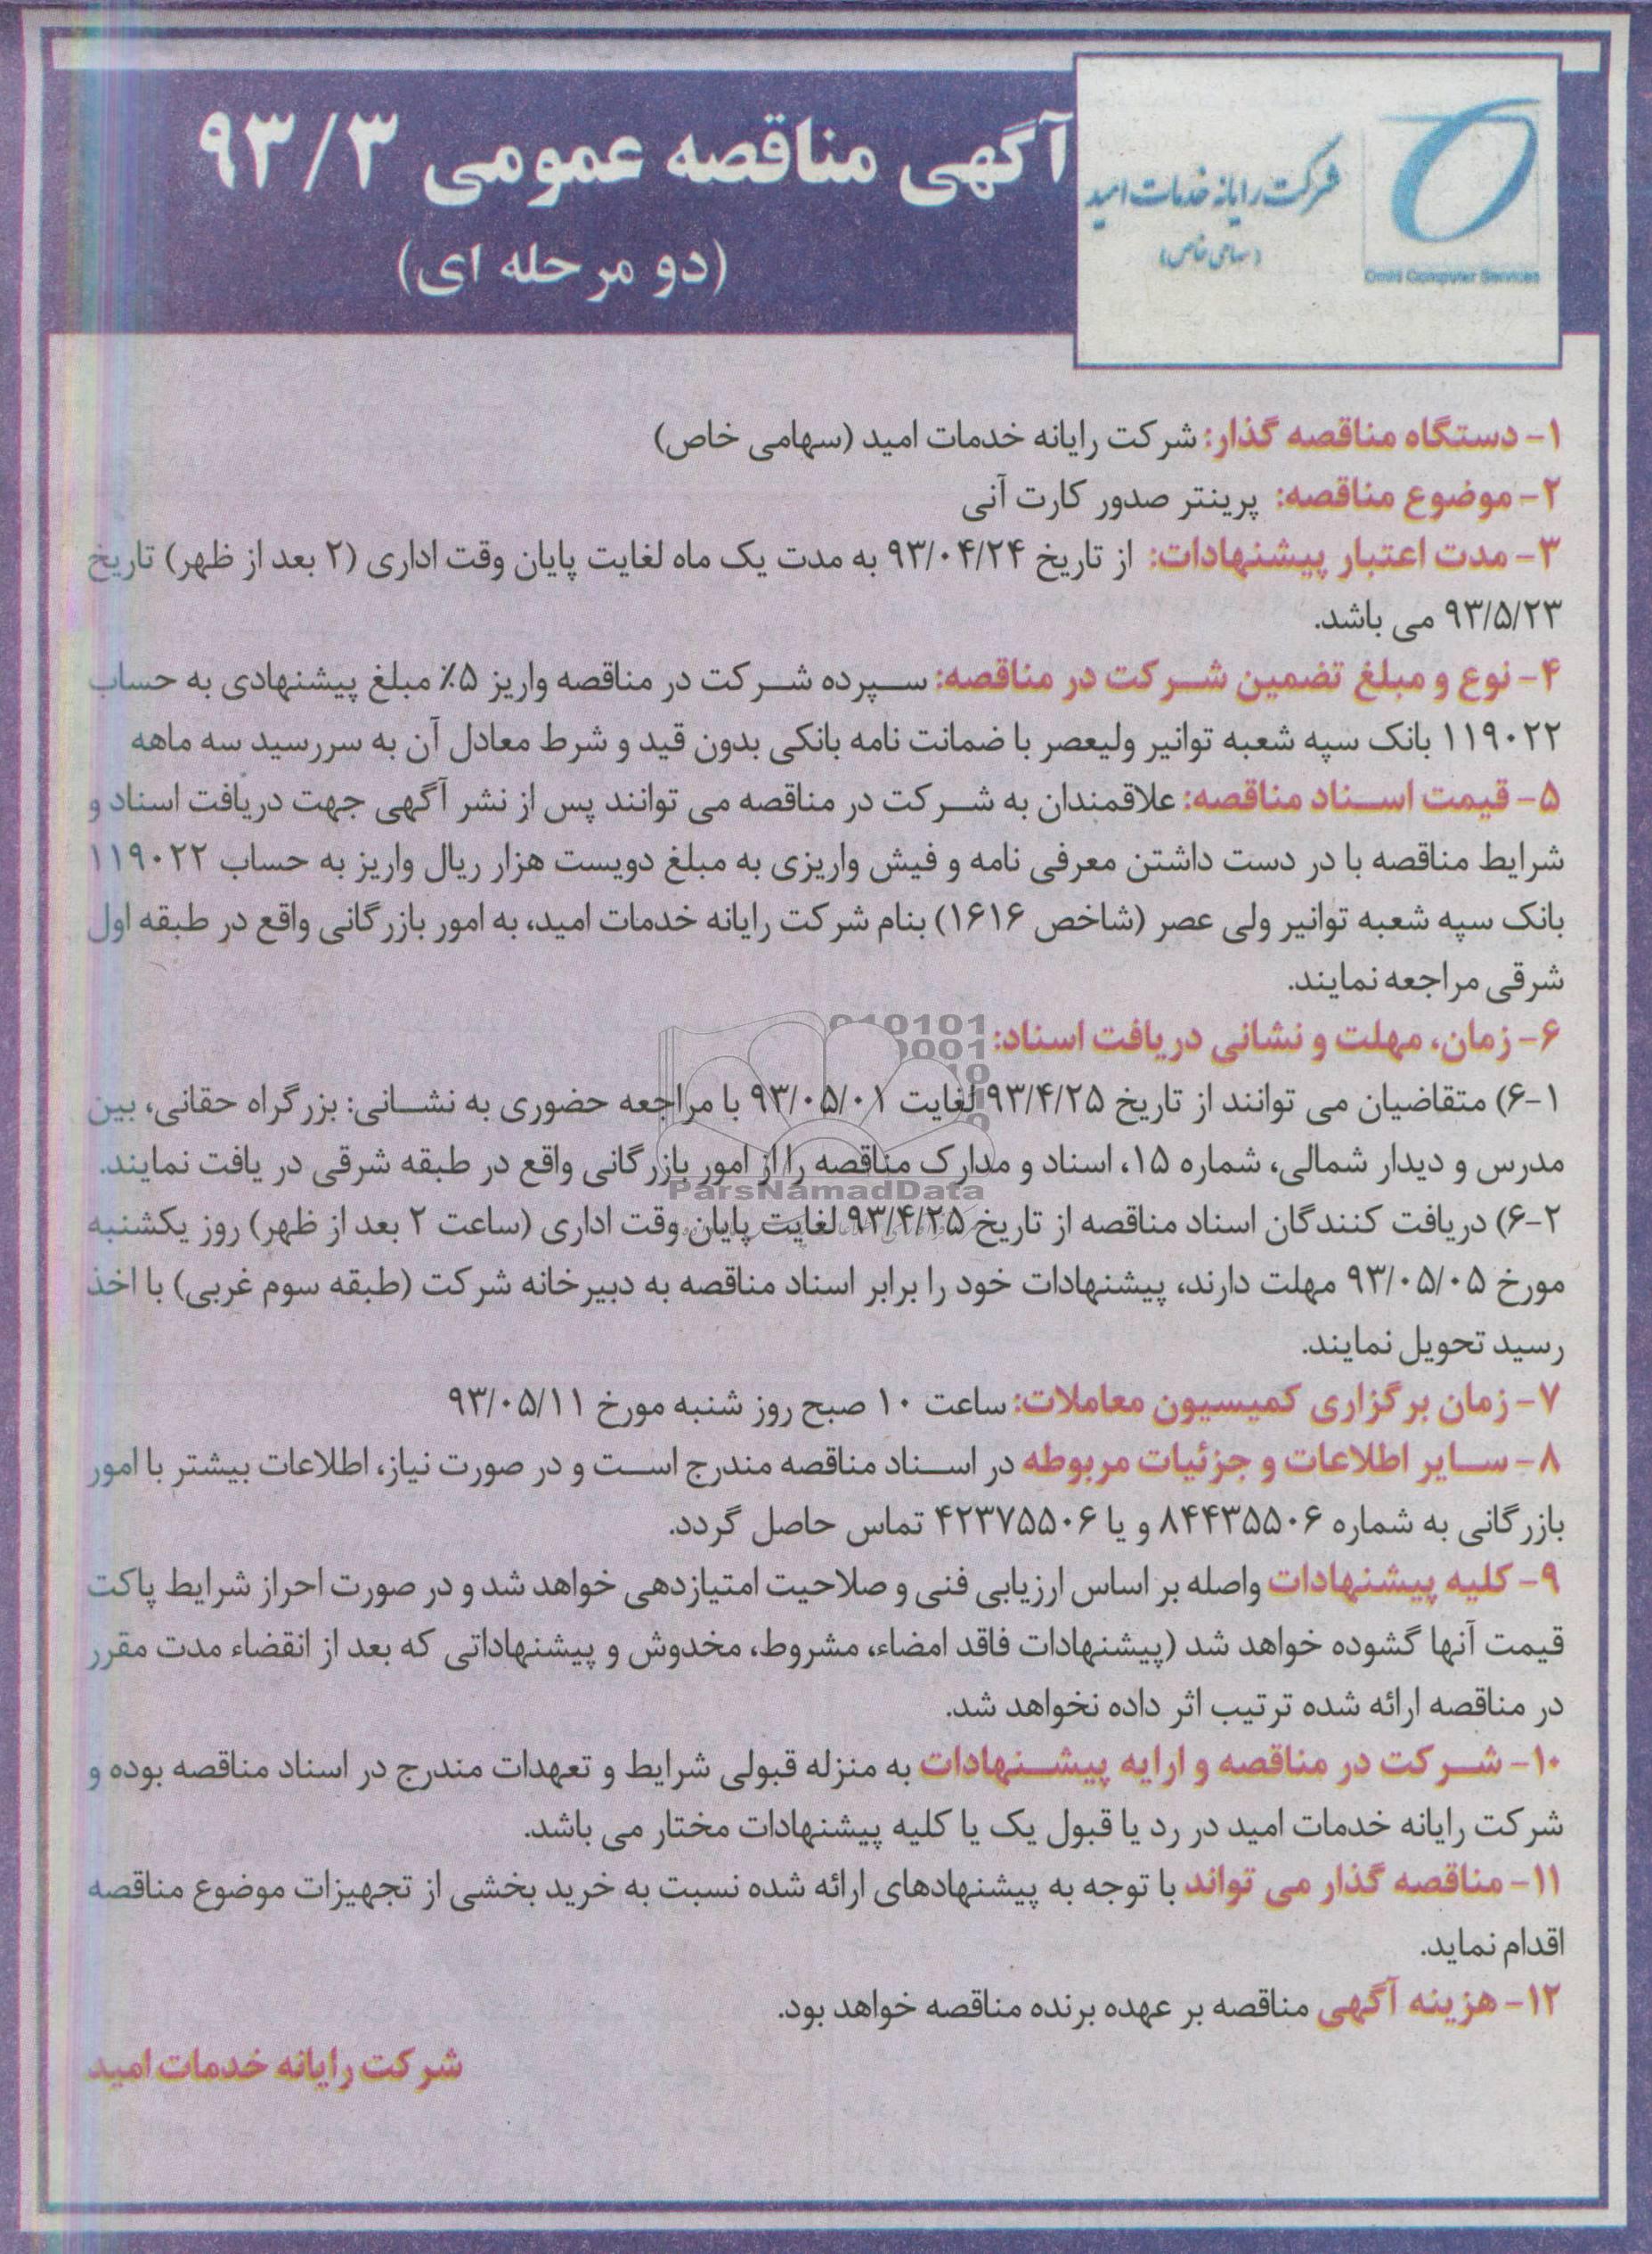 آگهی مناقصه عمومی ۹۳/۳
(دو مرحله ای)
شرکت رایانه خدمات امید
(سهامی خاص)
Omid Computer Services
۱- دستگاه مناقصه گذار: شرکت رایانه خدمات امید (سهامی خاص)
۲- موضوع مناقصه: پرینتر صدور کارت آنی
۳- مدت اعتبار پیشنهادات: از تاریخ ۹۳/۰۴/۲۴ به مدت یک ماه لغایت پایان وقت اداری (۲ بعد از ظهر) تاریخ
۹۳/۵/۲۳ می باشد.
۴- نوع و مبلغ تضمین شرکت در مناقصه: سپرده شرکت در مناقصه واریز ۵٪ مبلغ پیشنهادی به حساب
۱۱۹۰۲۲ بانک سپه شعبه توانیر ولیعصر با ضمانت نامه بانکی بدون قید و شرط معادل آن به سررسید سه ماهه
۵- قیمت اسناد مناقصه: علاقمندان به شرکت در مناقصه می توانند پس از نشر آگهی جهت دریافت اسناد و
شرایط مناقصه با در دست داشتن معرفی نامه و فیش واریزی به مبلغ دویست هزار ریال واریز به حساب ۱۱۹۰۲۲
بانک سپه شعبه توانیر ولی عصر (شاخص ۱۶۱۶) بنام شرکت رایانه خدمات امید، به امور بازرگانی واقع در طبقه اول
شرقی مراجعه نمایند.
۶- زمان، مهلت و نشانی دریافت اسناد:
۶-۱) متقاضیان می توانند از تاریخ ۹۳/۴/۲۵ لغایت ۹۳/۰۵/۰۱ با مراجعه حضوری به نشانی: بزرگراه حقانی، بین
مدرس و دیدار شمالی، شماره ۱۵، اسناد و مدارک مناقصه را از امور بازرگانی واقع در طبقه شرقی در یافت نمایند.
ParsNamadData
۶-۲) دریافت کنندگان اسناد مناقصه از تاریخ ۹۳/۴/۲۵ لغایت پایان وقت اداری (ساعت ۲ بعد از ظهر) روز یکشنبه
مورخ ۹۳/۰۵/۰۵ مهلت دارند، پیشنهادات خود را برابر اسناد مناقصه به دبیرخانه شرکت (طبقه سوم غربی) با اخذ
رسید تحویل نمایند.
۷- زمان برگزاری کمیسیون معاملات: ساعت ۱۰ صبح روز شنبه مورخ ۹۳/۰۵/۱۱
۸- سایر اطلاعات و جزئیات مربوطه در اسناد مناقصه مندرج است و در صورت نیاز، اطلاعات بیشتر با امور
بازرگانی به شماره ۸۴۴۳۵۵۰۶ و یا ۴۲۳۷۵۵۰۶ تماس حاصل گردد.
۹- کلیه پیشنهادات واصله بر اساس ارزیابی فنی و صلاحیت امتیازدهی خواهد شد و در صورت احراز شرایط پاکت
قیمت آنها گشوده خواهد شد (پیشنهادات فاقد امضاء، مشروط، مخدوش و پیشنهاداتی که بعد از انقضاء مدت مقرر
در مناقصه ارائه شده ترتیب اثر داده نخواهد شد.
۱۰- شرکت در مناقصه و ارایه پیشنهادات به منزله قبولی شرایط و تعهدات مندرج در اسناد مناقصه بوده و
شرکت رایانه خدمات امید در رد یا قبول یک یا کلیه پیشنهادات مختار می باشد.
۱۱- مناقصه گذار می تواند با توجه به پیشنهادهای ارائه شده نسبت به خرید بخشی از تجهیزات موضوع مناقصه
اقدام نماید.
۱۲- هزینه آگهی مناقصه بر عهده برنده مناقصه خواهد بود.
شرکت رایانه خدمات امید